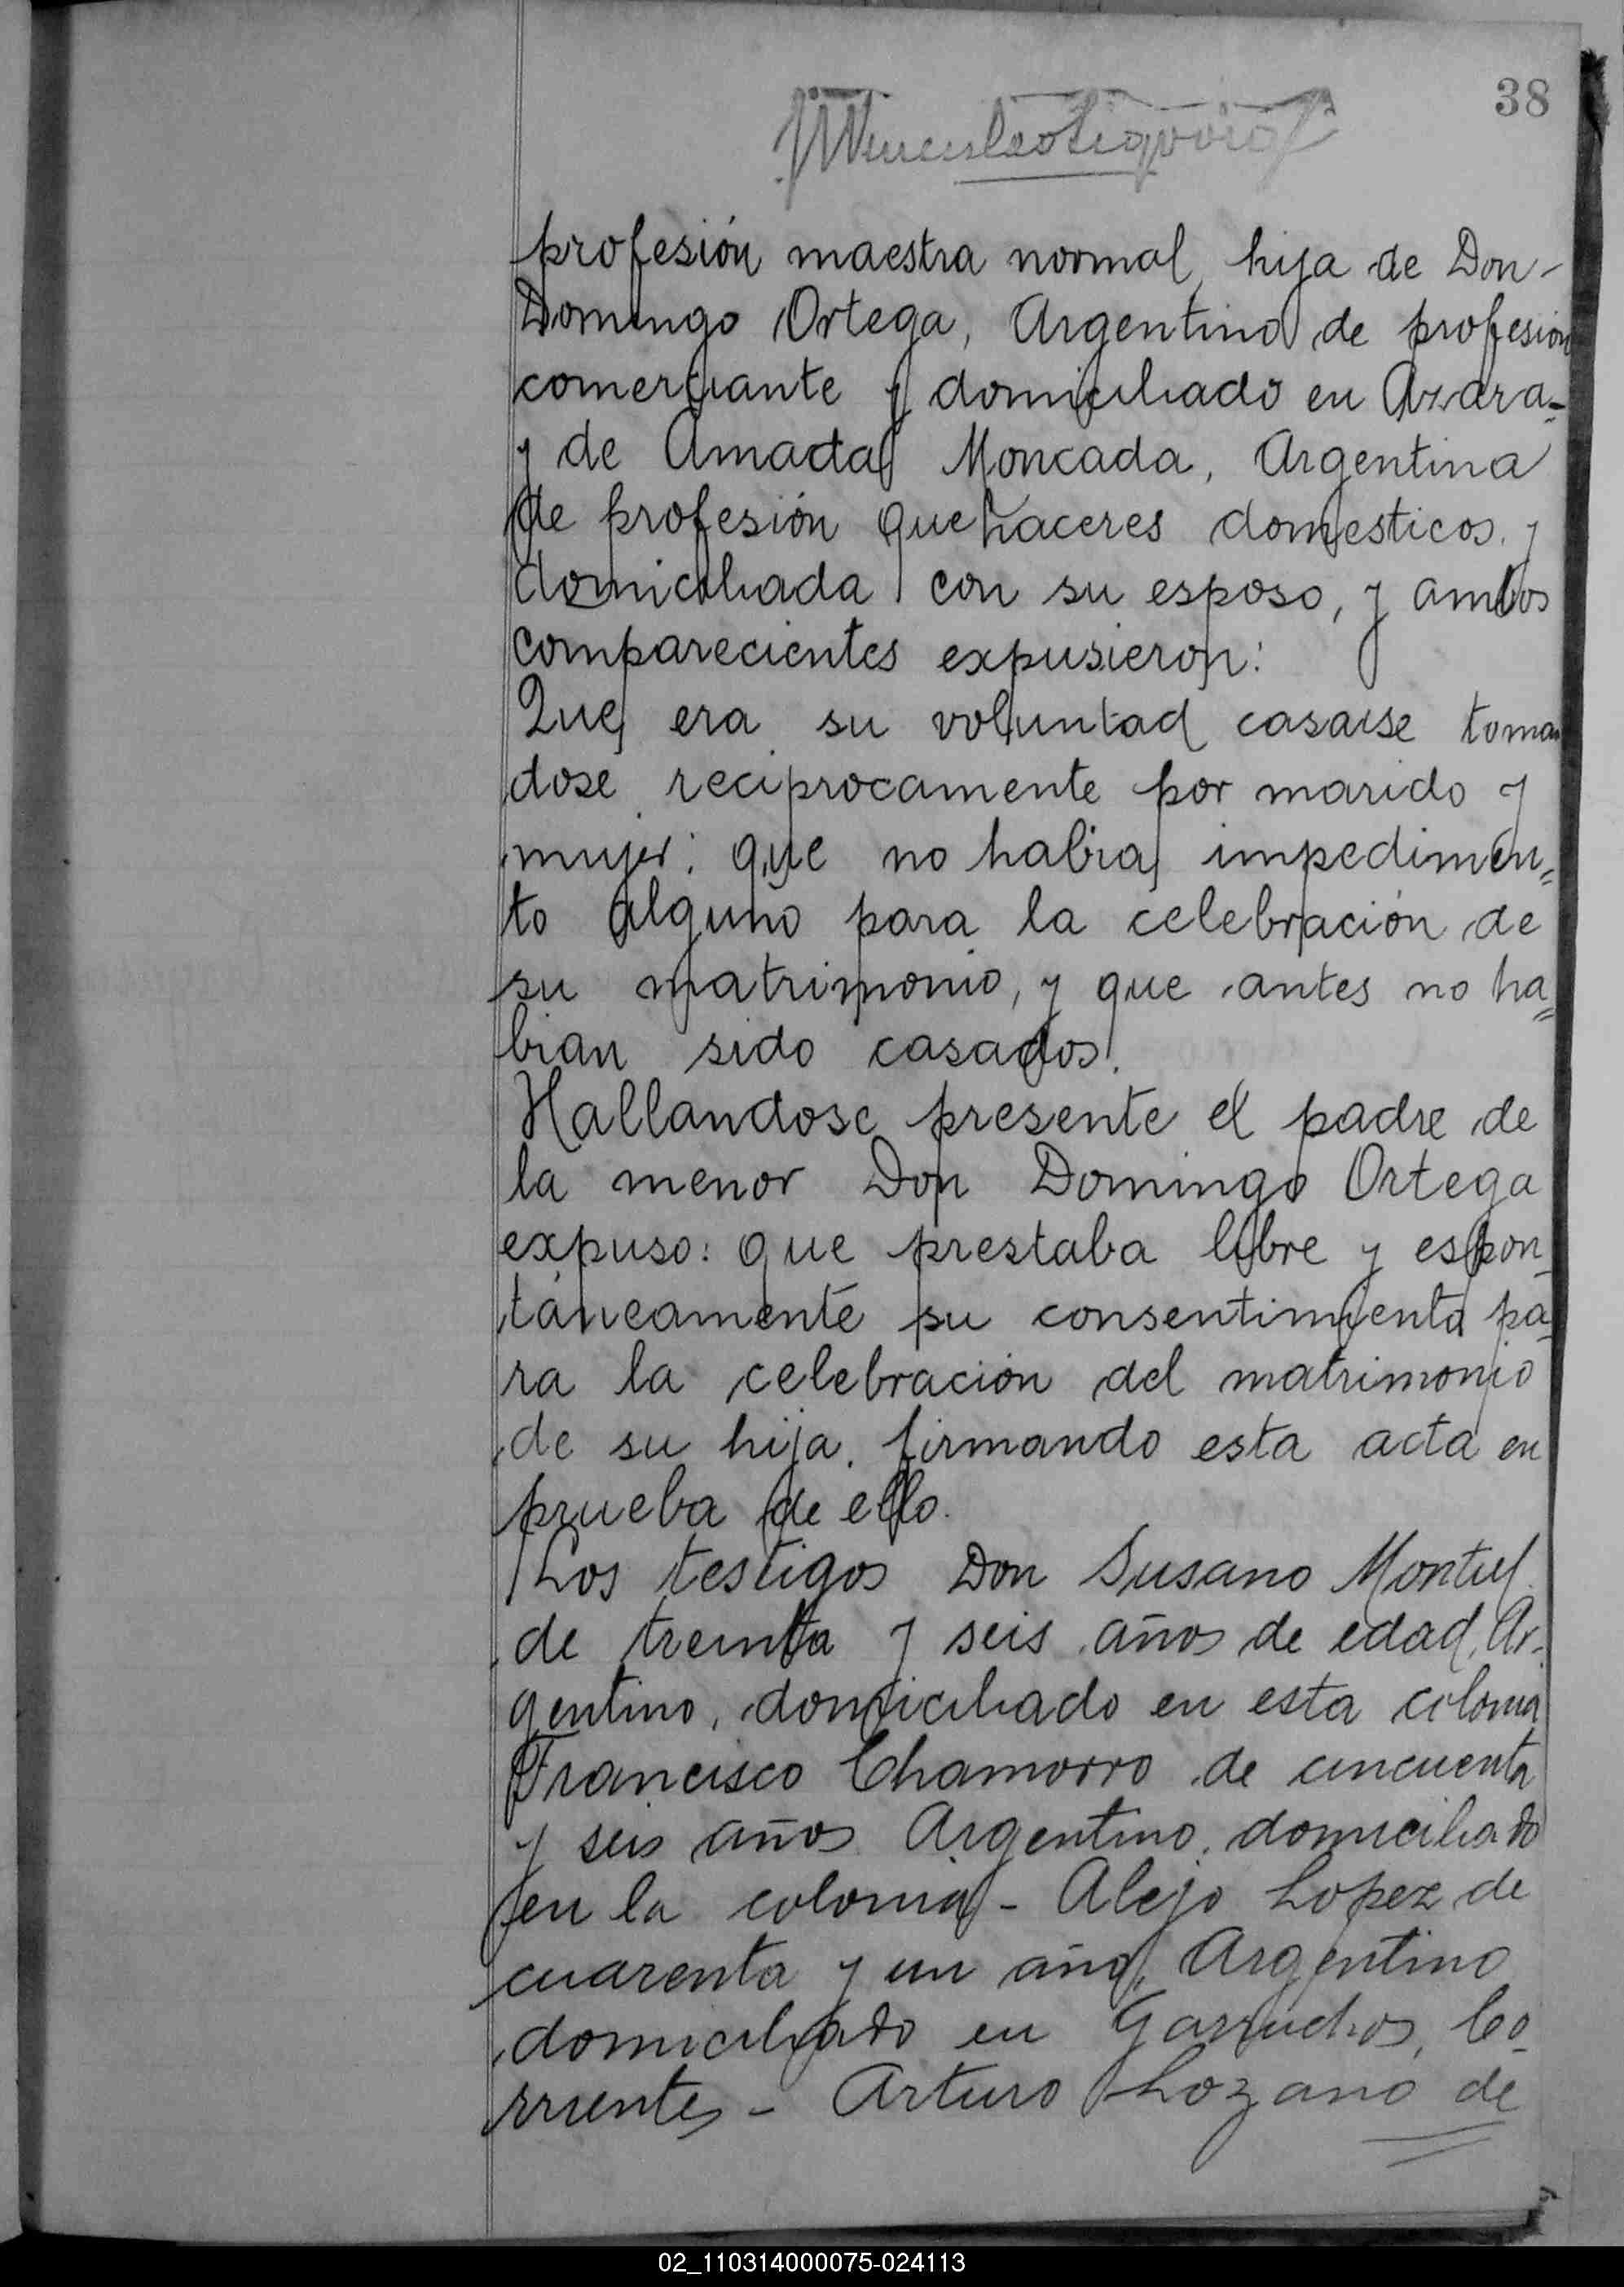 38
profesión maestra normal, hija de Don-
Domingo Ortega, Argentino de profesión
comerciante y domiciliado en Azara-
y de Amada Moncada, Argentina
de profesión quehaceres domesticos y
domiciliada con su esposo, y ambos
comparecientes expusieron:
Que era su voluntad casarse toman
dose reciprocamente por marido y
mujer: que no habia impedimen=
to alguno para la celebración de
su matrimonio, y que antes no ha=
bian sido casados.
Hallandose presente el padre de
la menor Don Domingo Ortega
expuso: que prestaba libre y espon_
táneamente su consentimiento pa=
ra la celebración del matrimonio
de su hija, firmando esta acta en
prueba de ello.
Los testigos Don Susano Montiel
de treinta y seis años de edad, Ar-
gentino, domiciliado en esta colonia
Francisco Chamorro de cincuenta
y seis años Argentino, domiciliado
en la colonia - Alejo Lopez de
cuarenta y un año, Argentino
domiciliado en Garruchos, Co-
rrientes - Arturo Lozano de
02_110314000075-024113